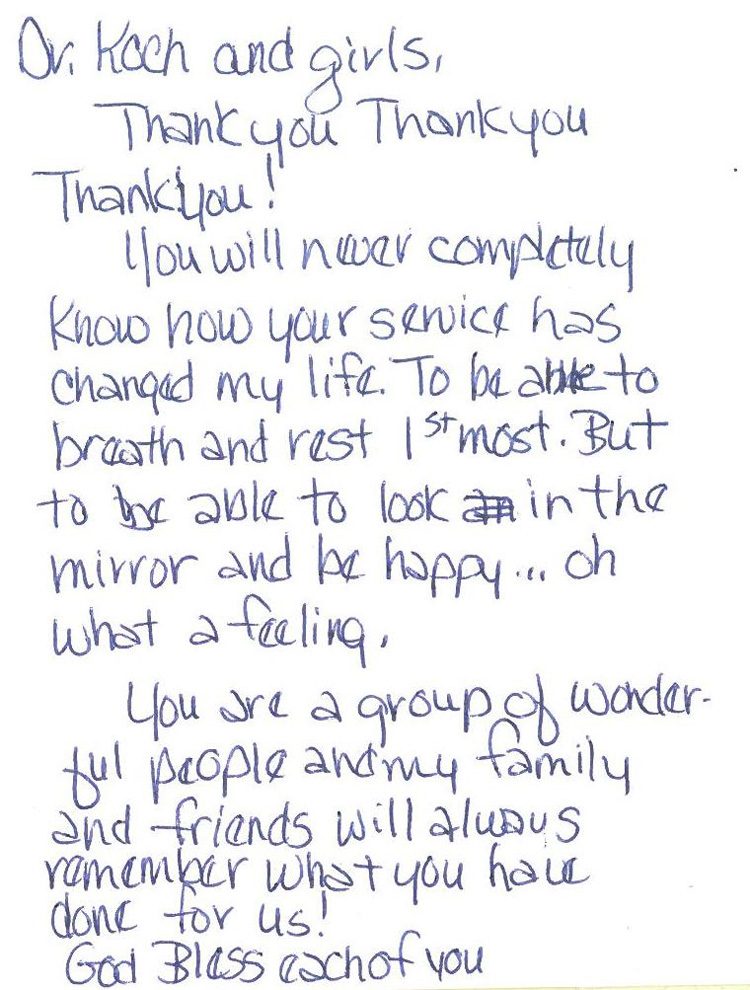 Dr. Koch and girls,
Thank you Thank you
Thank you!
You will never completely
know how your service has
changed my life. To be able to
breath and rest 1st most. But
to be able to look in the
mirror and be happy... oh
what a feeling.
You are a group of wonder-
ful people and my family
and friends will always
remember what you have
done for us!
God Bless each of you